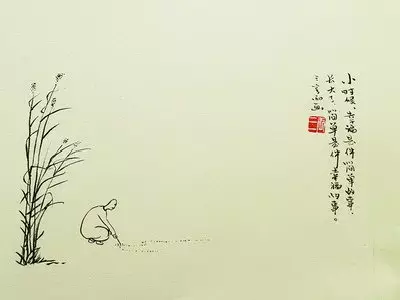 小时候,幸福是件简单的事,
长大了,简单是件幸福的事。